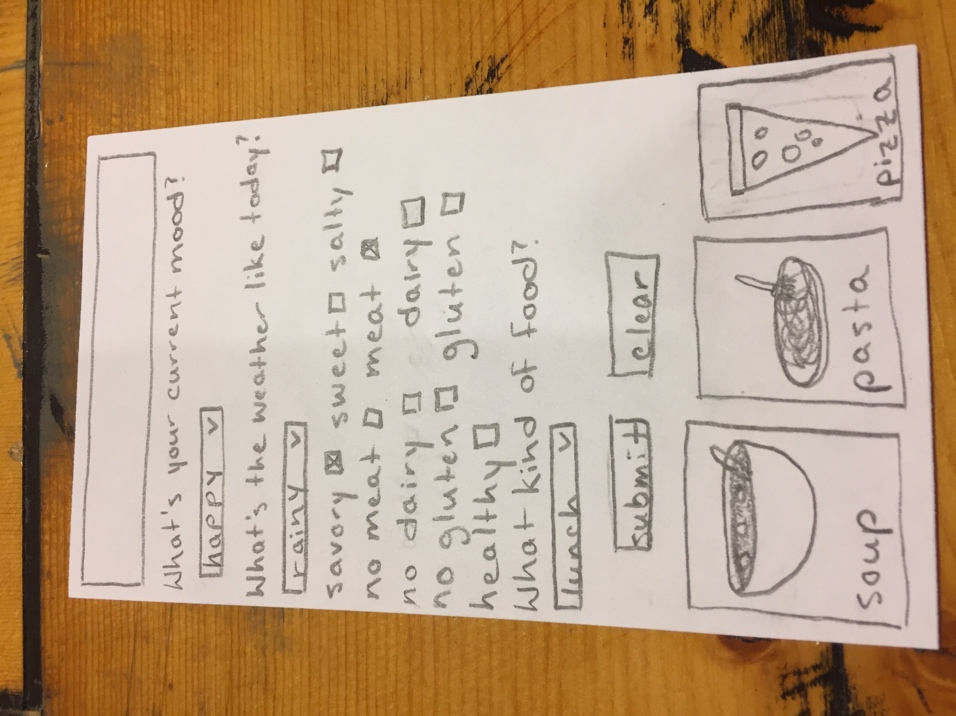 What's your current mood?
happy v
What's the weather like today?
rainy v
savory sweet salty
no meat meat
no dairy dairy
no gluten gluten
healthy
What kind of food?
lunch v
submit clear
soup pasta pizza